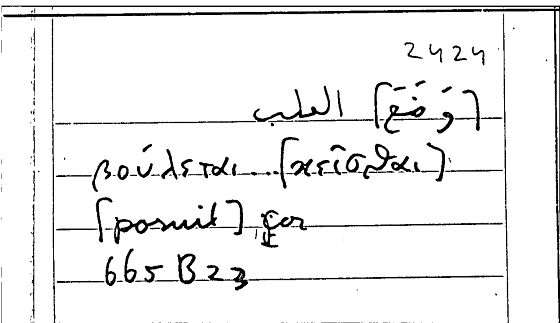 2424
[وَضَعَ] الطلب
βούλεται...[κεῖσθαι]
[posuit]
665 B 23